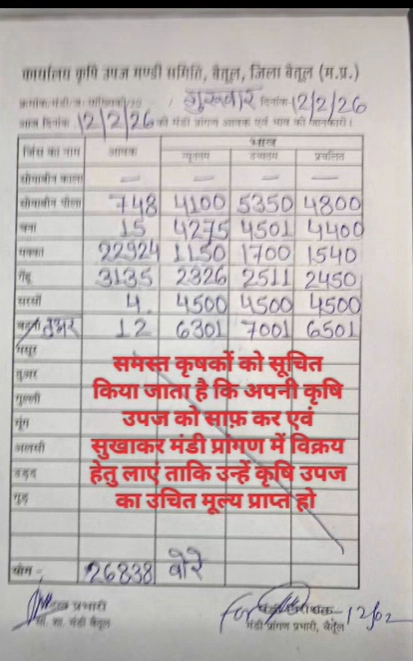 कार्यालय कृषि उपज मण्डी समिति, बैतूल, जिला बैतूल (म.प्र.)
गुरूवार दिनांक 12/2/26
आज दिनांक 12/2/26 की मंडी प्रांगण आवक एवं भाव की जानकारी।
जिंस का नाम आवक भाव
न्यूनतम उच्चतम प्रचलित
सोयाबीन काला — — — —
सोयाबीन पीला 748 4100 5350 4800
चना 15 4275 4501 4400
मक्का 22924 1150 1700 1540
गेहू 3135 2326 2511 2450
सरसों 4. 4500 4500 4500
तुअर 12 6301 7001 6501
मसूर
तुअर
गुल्ली
मूंग
अलसी
उड़द
गुड़
समस्त कृषकों को सूचित
किया जाता है कि अपनी कृषि
उपज को साफ़ कर एवं
सुखाकर मंडी प्रांगण में विक्रय
हेतु लाएं ताकि उन्हें कृषि उपज
का उचित मूल्य प्राप्त हो
योग - 26838 बोरे
प्रभारी
मंडी बैतूल
For 12/02
मंडी प्रांगण प्रभारी, बैतूल